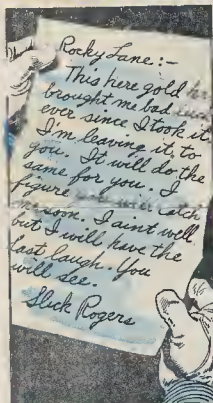 Rocky Lane:-
This here gold
brought me bad
ever since I took it.
I'm leaving it to
you. It will do the
same for you. I
figure catch
me soon. I aint well
but I will have the
last laugh. You
will see.
Slick Rogers